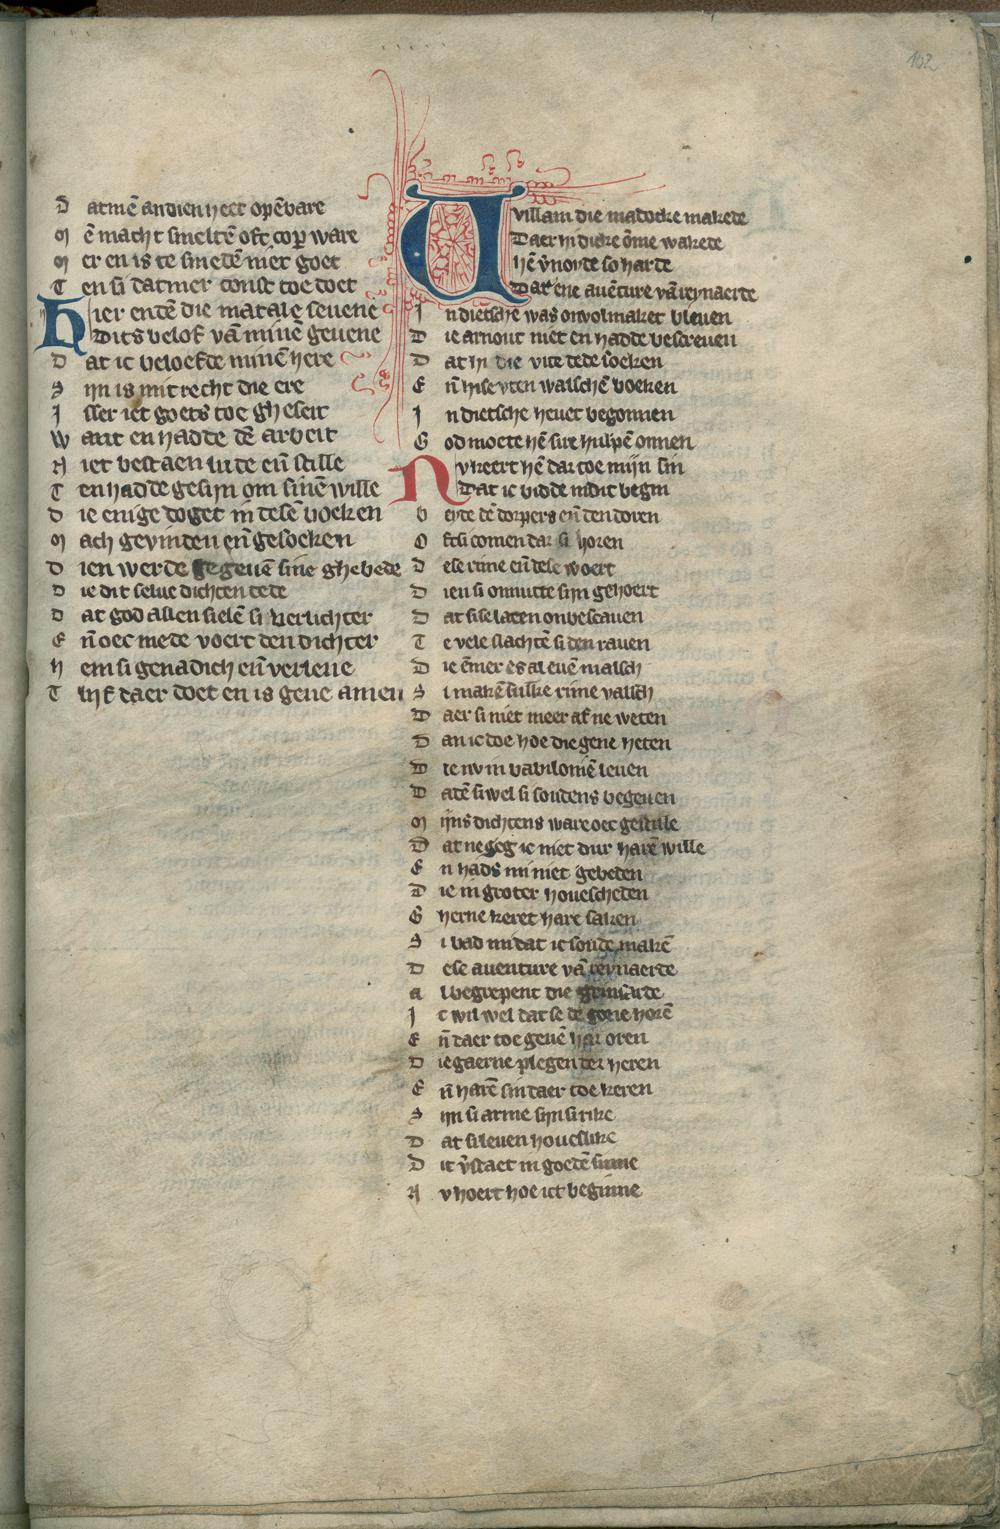 102
D atmē an dien heet opēbare
M ē mach t smeltē oft cop ware
M er en is te smedē niet goet
T en si datmer const toe doet
Hier endē die matale seuene
Dits belof vā minē geuene
D at ic beloefde minē here
S ijn is mit recht die ere
J sser iet goets toe gheseit
W ant en hadde dē arbeit
N iet bestaen lude eñ stille
T en hadde gesijn om sinē wille
D ie enige doget in desē boeken
M ach gevinden eñ gesoeken
D ien werde gegeuē sine ghebede
D ie dit selue dichten dede
D at god allen sielē si verlichter
E ñ oec mede voert den dichter
H em si genadich eñ verleue
T lijf daer doet en is geue amen
Uvillam die madocke makede
Daer hi dicke ōme wakede
Hē v̄noyde so harde
Dat ene auēture vā reynaerde
J n dietsche was onvolmaket bleuen
D ie arnout niet en hadde bescreuen
D at hi die vite dede soeken
E ñ hise vten walschē boeken
J n dietsche heuet begonnen
G od moete hē sire hulpē onnen
Nv keert hē dar toe mijn sin
Dat ic bidde in dit begin
B eyde dē dorpers eñ den doren
O ft si comen dar si horen
D ese rime eñ dese woert
D ien si onnutte sijn gehoert
D at sise laten onbescauen
T e vele slachtē si den rauen
D ie ēmer es al euē malsch
S i makē sulke rime valsch
D aer si niet meer af ne weten
D an ic doe hoe die gene heten
D ie nv in babiloniē leuen
D adē si wel si soudens begeuen
M ijns dichtens ware oec gestille
D at ne seg ic niet dur harē wille
E n hads mi niet gebeden
D ie in groter houescheden
G herne keret hare saken
S i bad mi dat ic soude makē
D ese auenture vā reynaerde
A l begrepent die
J c wil wel dat se de gorie horē
E ñ daer toe geuē har oren
D ie gaerne plegen der heren
E ñ harē sin daer toe keren
S ijn si arme sijn si rike
D at si leuen houeslike
D it v̄staet in goedē sinne
N v hoert hoe ict beginne